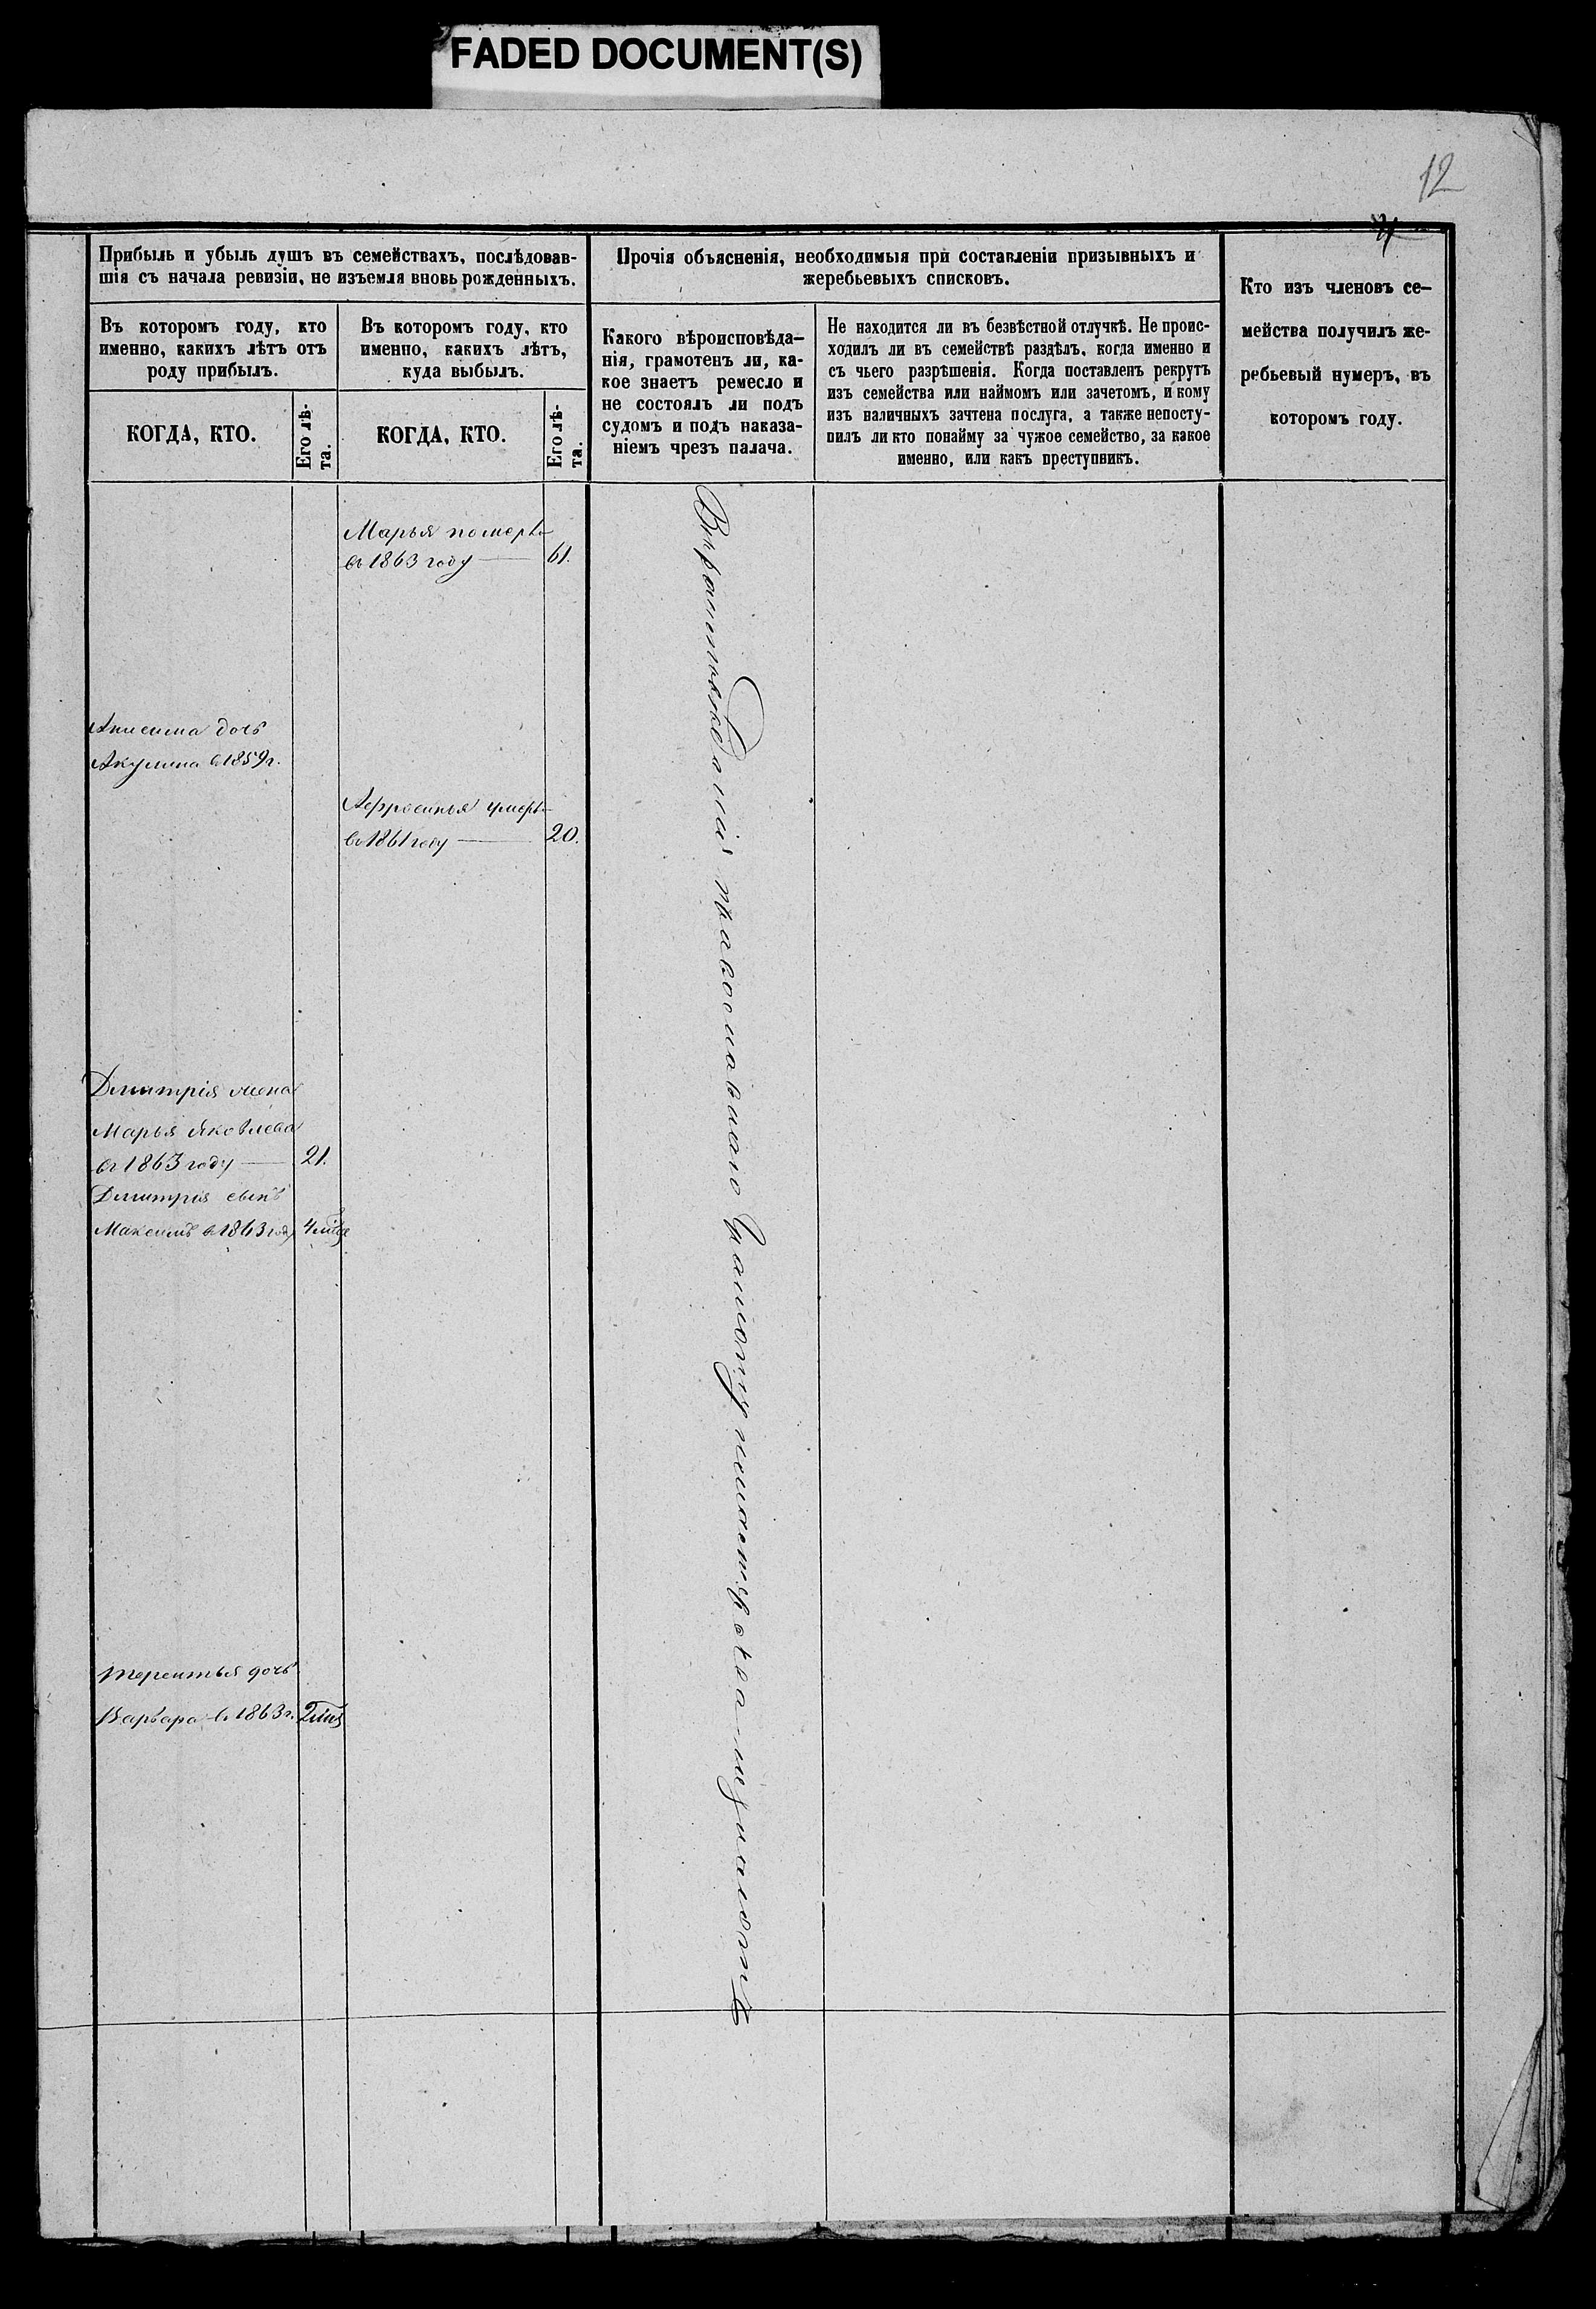 FADED DOCUMENT(S)
12
Прибыль и убыль душъ въ семействахъ, послѣдовав-
шія съ начала ревизіи, не изъемля вновь рожденныхъ.
Въ которомъ году, кто
именно, какихъ лѣтъ отъ
роду прибылъ.
КОГДА, КТО.
Его лѣ-
та.
Въ которомъ году, кто
именно, какихъ лѣтъ,
куда выбылъ.
КОГДА, КТО.
Его лѣ-
та.
Прочія объясненія, необходимыя при составленіи призывныхъ и
жеребьевыхъ списковъ.
Какого вѣроисповѣда-
нія, грамотенъ ли, ка-
кое знаетъ ремесло и
не состоялъ ли подъ
судомъ и подъ наказа-
ніемъ чрезъ палача.
Не находится ли въ безвѣстной отлучкѣ. Не проис-
ходилъ ли въ семействѣ раздѣлъ, когда именно и
съ чьего разрѣшенія. Когда поставленъ рекрутъ
изъ семейства или наймомъ или зачетомъ, и кому
изъ наличныхъ зачтена послуга, а также непосту-
пилъ ли кто понайму за чужое семейство, за какое
именно, или какъ преступникъ.
Кто изъ членовъ се-
мейства получилъ же-
ребьевый нумеръ, въ
которомъ году.
Марья померла
въ 1863 году — 61.
Анисима дочь
Акулина в 1859 г.
умерла
въ 1861 году — 20.
Дмитрія жена
Марья Яковлева
въ 1863 году — 21.
Дмитрія сынъ
Максимъ въ 1863 году
Терентья дочь
Варвара въ 1863 г.
Вѣроисповѣданія православнаго